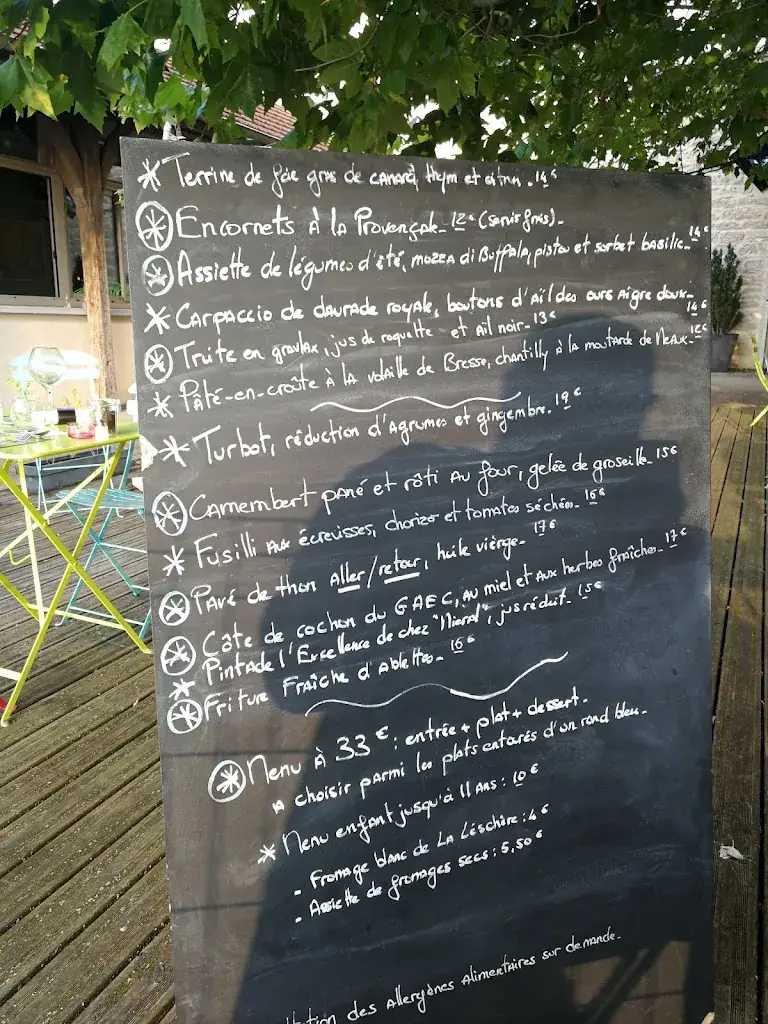 Terrine de foie gras de canard, thym et citron. 14€
Encornets à la Provençale. 12€ (servis froids).
Assiette de légumes d'été, mozza di Buffala, pistou et sorbet basilic. 14€
Carpaccio de daurade royale, boutons d'aïl des ours aigre doux. 14€
Truite en gravlax, jus de roquette et ail noir. 13€
Pâté-en-croûte à la volaille de Bresse, chantilly à la moutarde de Meaux. 12€
Turbot, réduction d'Agrumes et gingembre. 19€
Camembert pané et rôti au four, gelée de groseille. 15€
Fusilli aux écrevisses, chorizo et tomates séchées. 16€
Pavé de thon Aller/retour, huile vierge. 17€
Côte de cochon du GAEC, au miel et aux herbes fraîches. 17€
Pintade l'Excellence de chez "Miéral", jus réduit. 15€
Friture Fraîche d'Ablettes. 16€
Menu à 33€ : entrée + plat + dessert.
à choisir parmi les plats entourés d'un rond bleu.
Menu enfant jusqu'à 11 Ans : 10€
- Fromage blanc de La Léschère : 4€
- Assiette de fromages secs : 5,50€
des Allergènes Alimentaires sur demande.